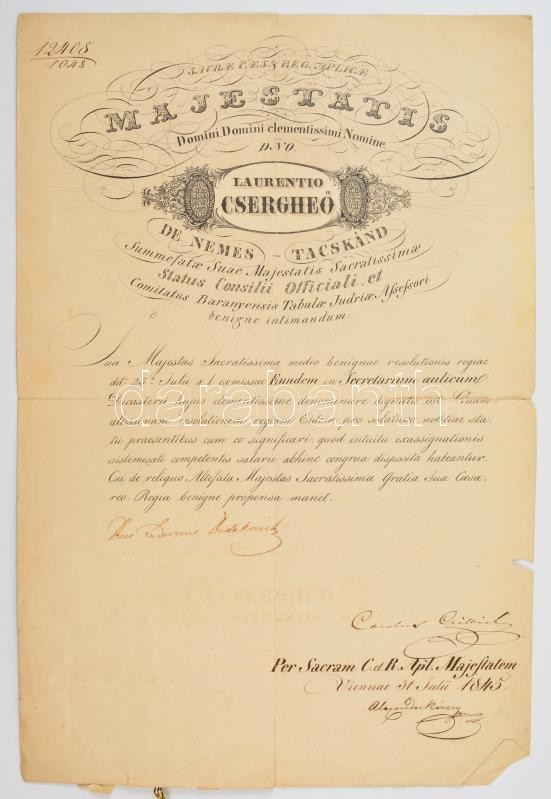 12408
1048
SACRÆ CÆS. & REG. APLICÆ
MAJESTATIS
Domini Domini clementissimi Nomine
D.NO.
LAURENTIO
CSERGHEÖ
DE NEMES - TACSKÁND
Summefatæ Suae Majestatis Sacratissimæ
Status Consilii Officiali, et
Comitatus Baranyensis Tabulæ Judriæ Assessori
benigne intimandum:
Sua Majestas Sacratissima medio benignae resolutionis regiae
ddto 25ª Julii a. c. emissae Eundem in Secretarium aulicum
Dicasterii hujus clementissime denominare dignata est. Quam
altissimam resolutionem regiam Eidem pro solatiosa notitiae sta-
tu praesentibus cum eo significari: quod intuitu exassignationis
sistemisati competentis salarii abhinc congrua disposita habeantur.
Cui de reliquo Altefata Majestas Sacratissima Gratia Sua Cæsa-
reo-Regia benigne propensa manet.
darabanth
Carolus
Per Sacram C. et R. Apl. Majestatem
Viennae 31 Julii 1845.
Alexander